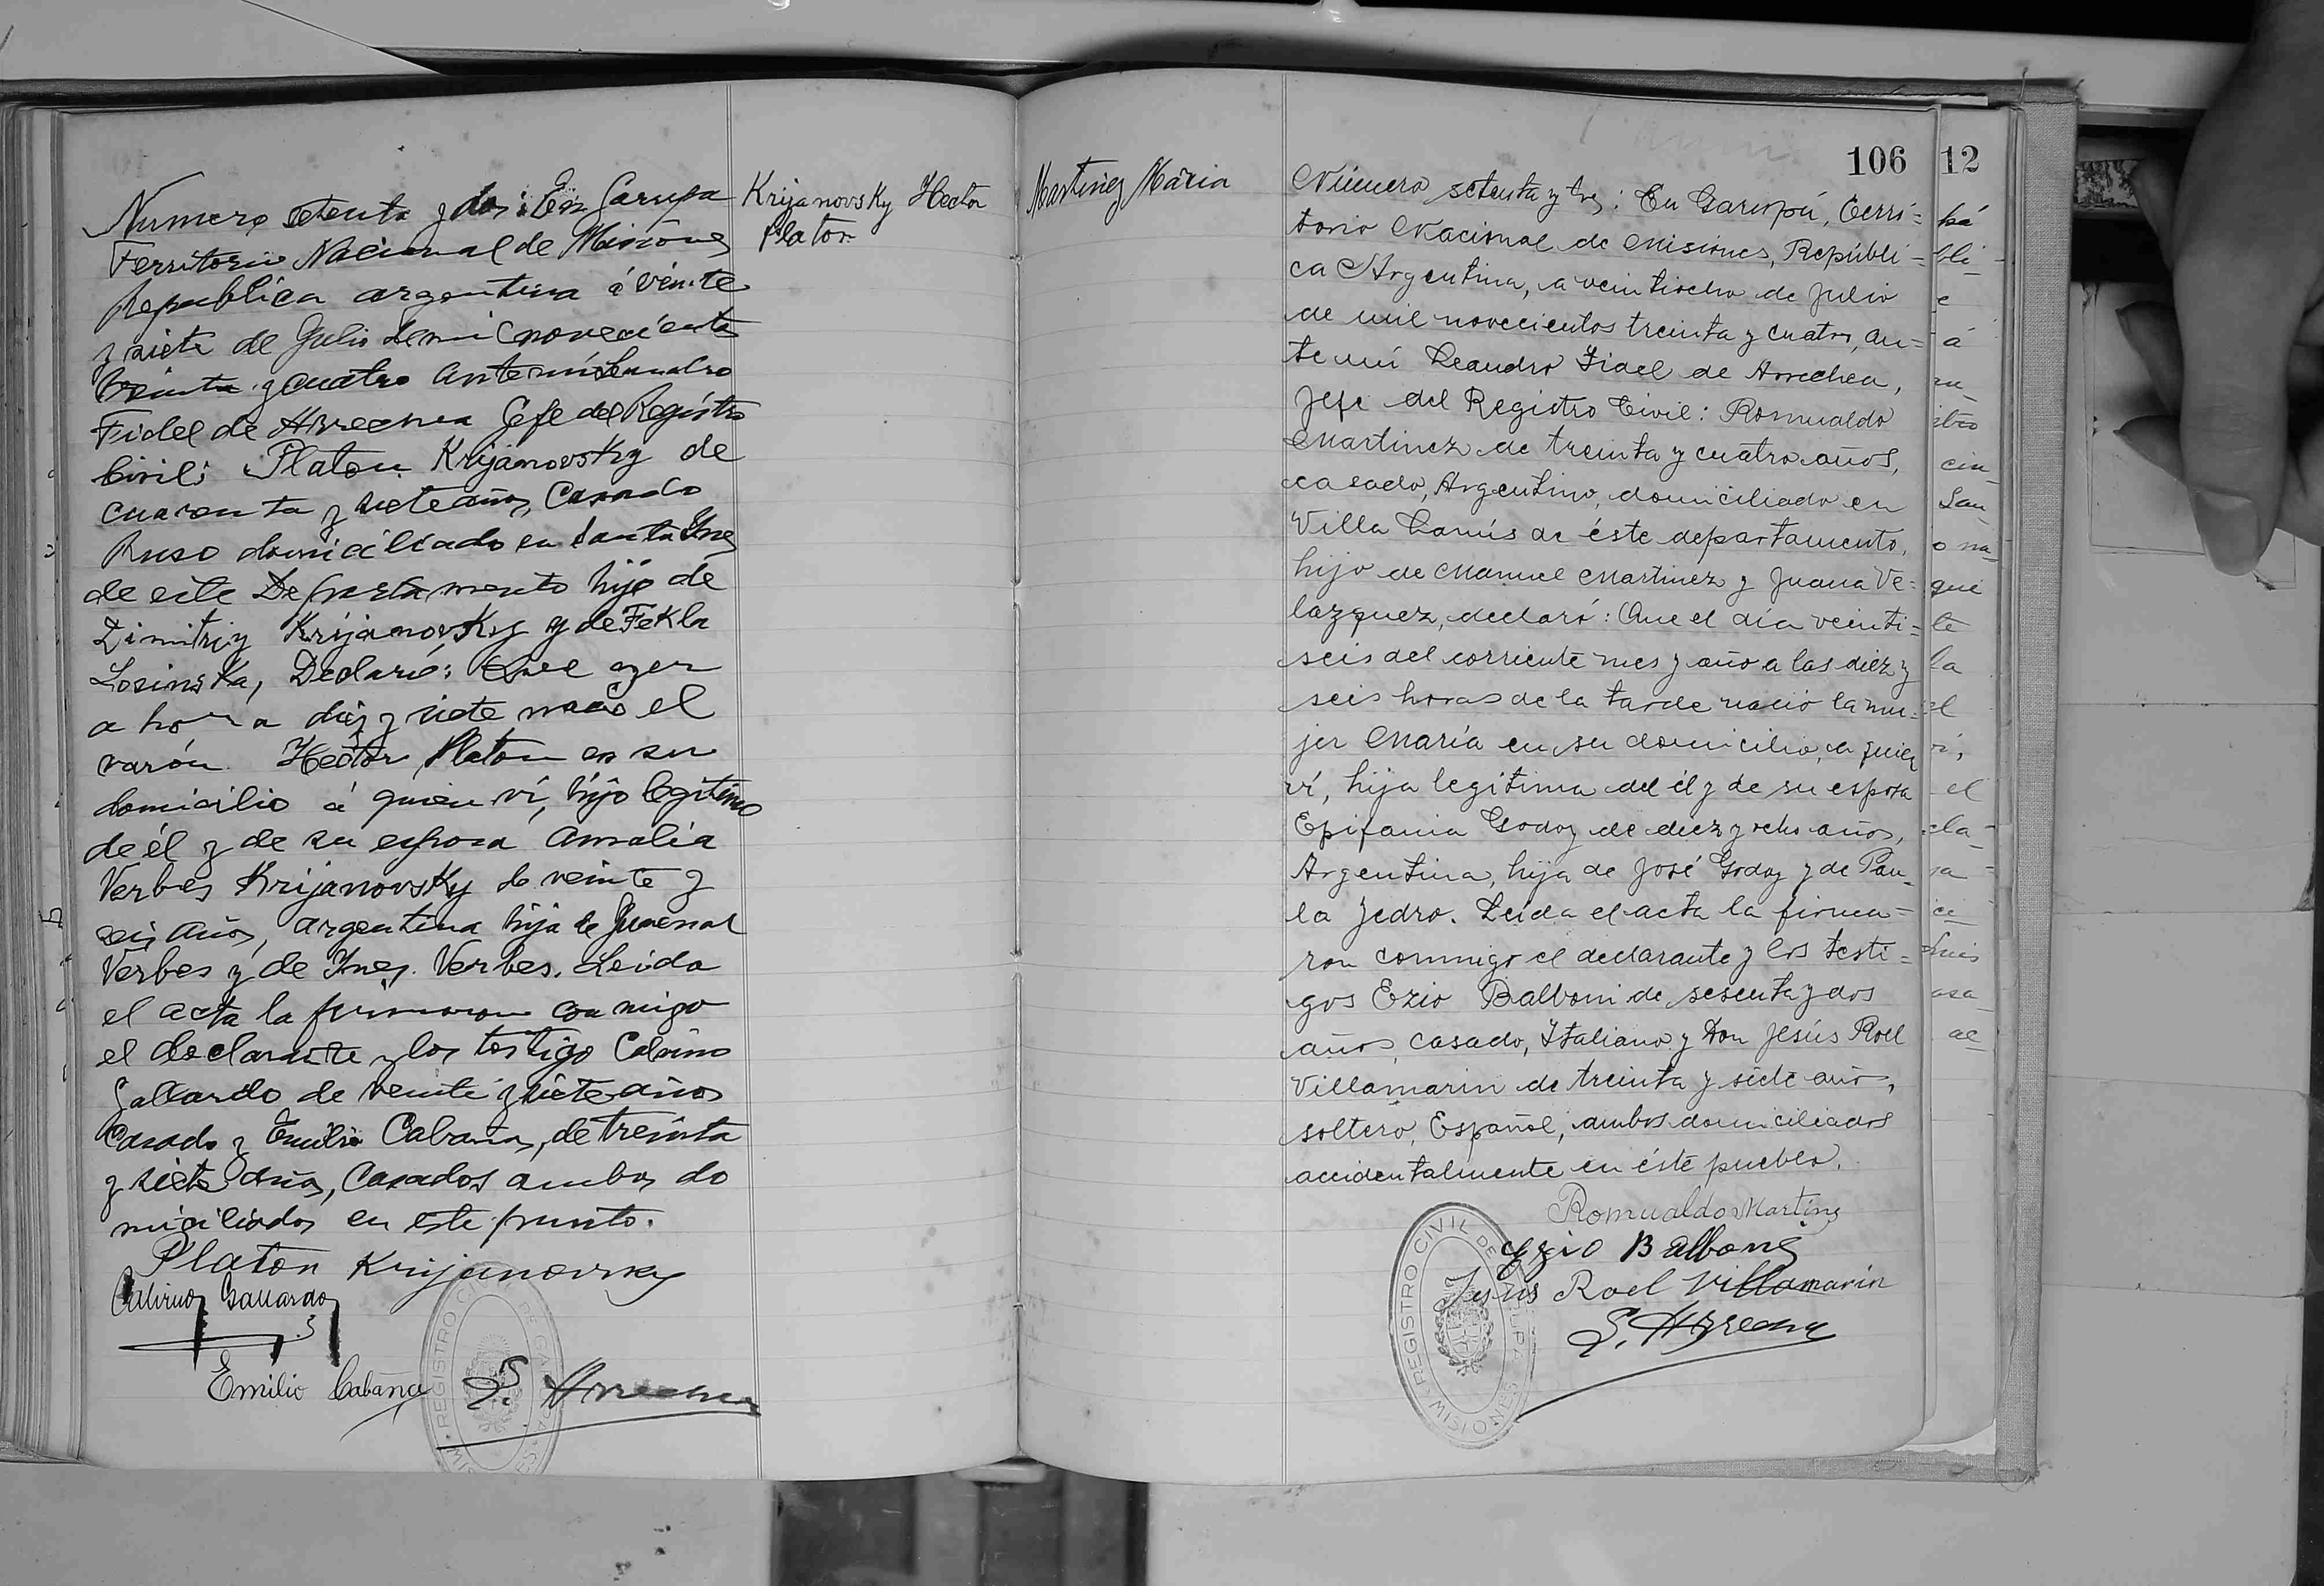 Numero setenta y dos: En Garupa
Territorio Nacional de Misiones
Republica argentina á veinte
y siete de Julio de mil novecientos
treinta y cuatro ante mí Leandro
Fidel de Arrechea Gefe del Registro
Civil: Platon Krijanovsky de
cuarenta y siete años, Casado
Ruso domiciliado en Santa Ines
de este Departamento hijo de
Dimitriy Krijanovsky y de Fekla
Losinska, Declaró: Que ayer
a hora diez y siete nació el
varón Hector Platon en su
domicilio á quien ví, hijo legitimo
de él y de su esposa Amalia
Verbes Krijanovsky de veinte y
seis años, argentina hija de Juvenal
Verbes y de Ines Verbes. Leida
el acta la firmaron conmigo
el declarante y los testigo Calirio
Gallardo de veinte y siete años
Casado y Emilio Cabaña, de treinta
y siete años, Casados ambos do
miciliados en este punto.
Platon Krijanovsky
Gallardo
Emilio Cabaña L. Arrechea
Krijanovsky Hector
Platon
Martinez Maria
106
Número setenta y tres: En Garupá, Terri=
torio Nacional de Misiones, Repúbli=
ca Argentina, a veintiocho de Julio
de mil novecientos treinta y cuatro, an=
te mí Leandro Fidel de Arrechea,
Jefe del Registro Civil: Romualdo
Martinez de treinta y cuatro años,
casado, Argentino, domiciliado en
Villa Lanús de éste departamento,
hijo de Manuel Martinez y Juana Ve=
lazquez, declaró: Que el día veinti=
seis del corriente mes y año a las diez y
seis horas de la tarde nació la mu=
jer María en su domicilio, a quien
ví, hija legitima del él y de su esposa
Epifania Godoy de diez y ocho años,
Argentina, hija de José Godoy y de Pau=
la Jedro. Leída el acta la firma=
ron conmigo el declarante y los testi=
gos Ezio Balboni de sesenta y dos
años, casado, Italiano y Don Jesús Roel
Villamarin de treinta y siete años,
soltero, Español, ambos domiciliados
accidentalmente en éste pueblo.
Romualdo Martinz
Ezio Balboni
Jesus Roel Villamarin
L. Arrechea
REGISTRO CIVIL DE GARUPA
MISIONES
12
pá
bli
e
á
an
stro
cin
San
o na
que
te
la
el
ví,
el
cla
sa
ce
Luis
asa
ae